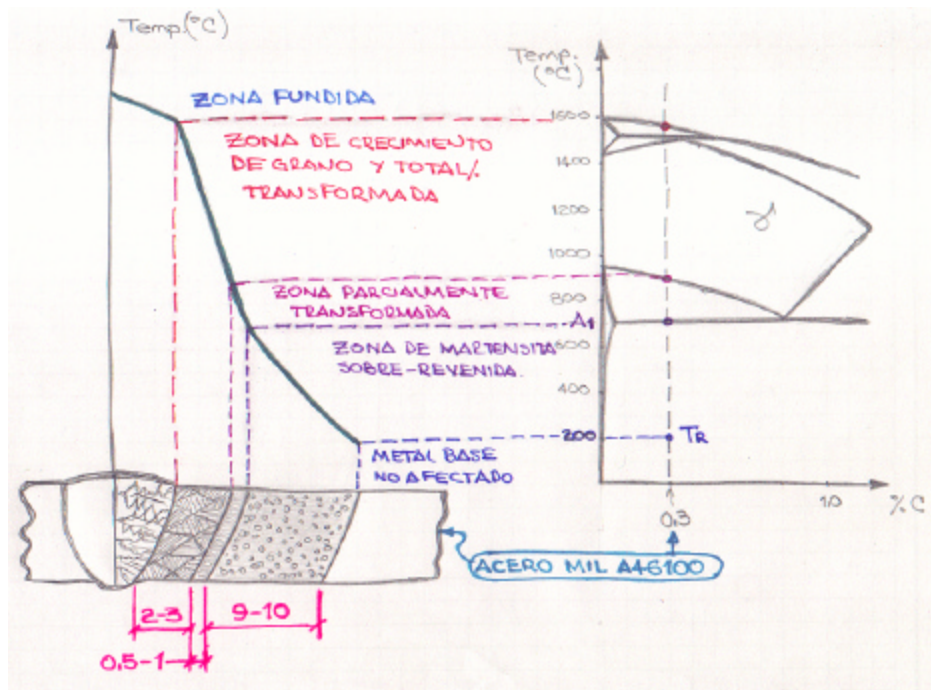 Temp.(°C)
ZONA FUNDIDA
ZONA DE CRECIMIENTO
DE GRANO Y TOTAL/.
TRANSFORMADA
ZONA PARCIALMENTE
TRANSFORMADA
ZONA DE MARTENSITA
SOBRE-REVENIDA.
METAL BASE
NO AFECTADO
Temp.
(°C)
1600
1400
1200
1000
800
A1
600
400
200
γ
TR
0.3
1.0
%C
ACERO MIL A46100
2-3
9-10
0.5-1